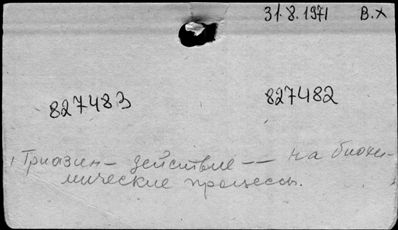 31.8.1971 В.Х
827483 827482
Триазин – действие –– на биохи-
мические процессы.